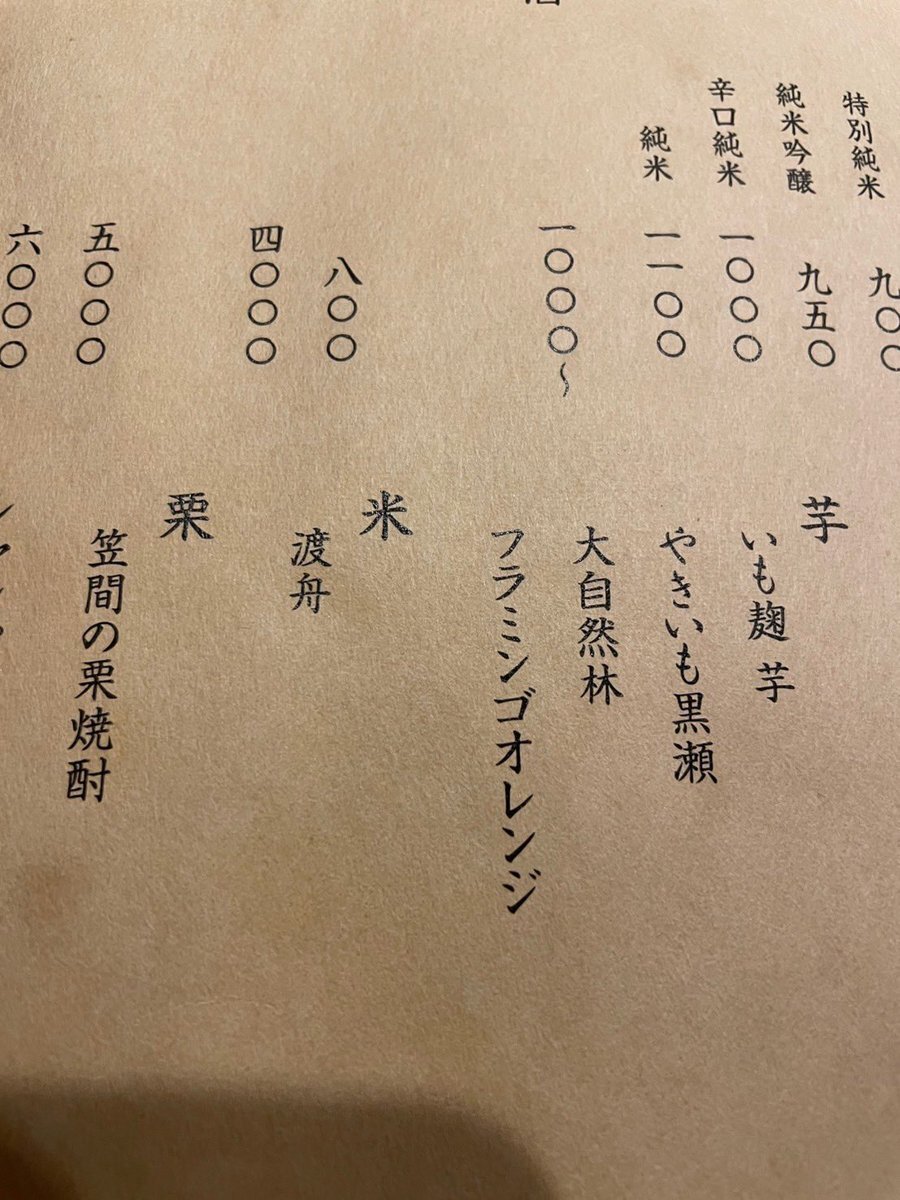 特別純米 九〇〇
純米吟醸 九五〇
辛口純米 一〇〇〇
純米 一一〇〇
一〇〇〇〜
八〇〇
四〇〇〇
五〇〇〇
六〇〇〇
芋
いも麹 芋
やきいも黒瀬
大自然林
フラミンゴオレンジ
米
渡舟
栗
笠間の栗焼酎